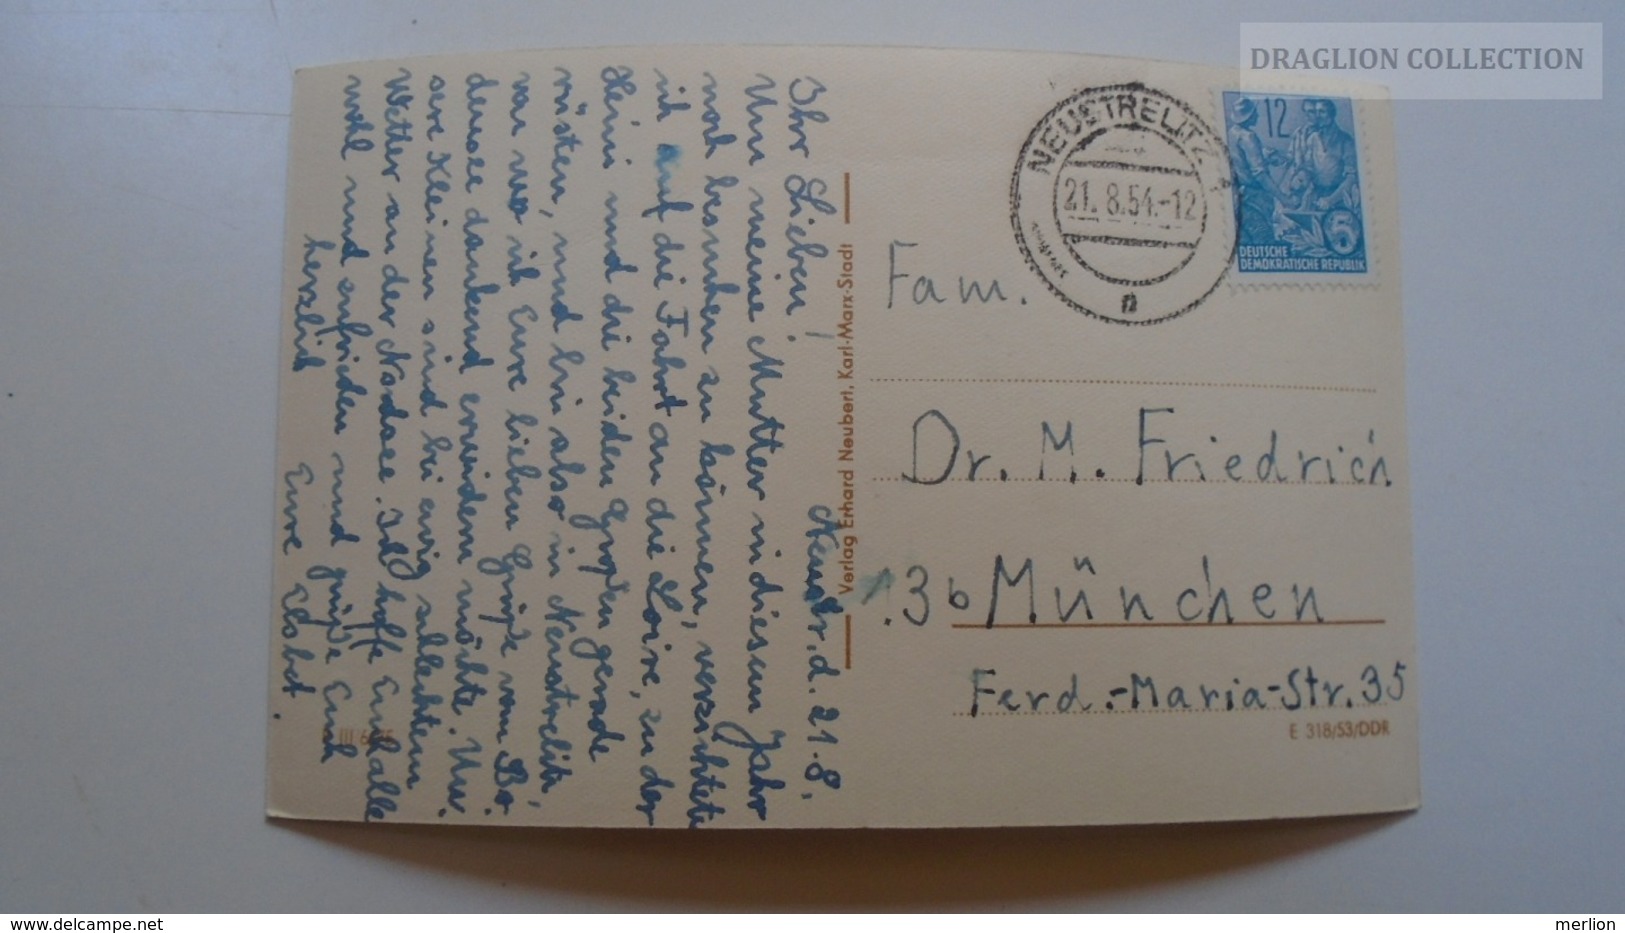 DRAGLION COLLECTION
NEUSTRELITZ 1
21.8.54.-12
n
12
5
DEUTSCHE
DEMOKRATISCHE REPUBLIK
Neustr. d. 21.8.
Ihr Lieben!
Um meine Mutter in diesem Jahr
noch besuchen zu können, verzichtete
ich auf die Fahrt an die Loire, zu der
Heini und die beiden Großen gerade
rüsten, und bin also in Neustrelitz,
von wo ich Eure lieben Grüße vom Bo-
densee dankend erwidern möchte. Un-
sere Kleinen sind bei ewig schlechtem
Wetter an der Nordsee. Ich hoffe Euch alle
wohl und zufrieden und grüße Euch
herzlich Eure
Verlag Erhard Neubert, Karl-Marx-Stadt
Fam.
Dr. M. Friedrich
13b München
Ferd.-Maria-Str. 35
E 318/53/DDR
merlion